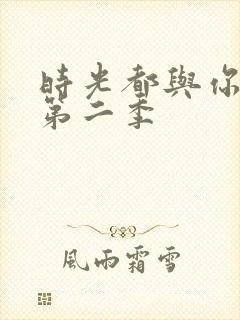 時光都與你
第二季
風雨霜雪